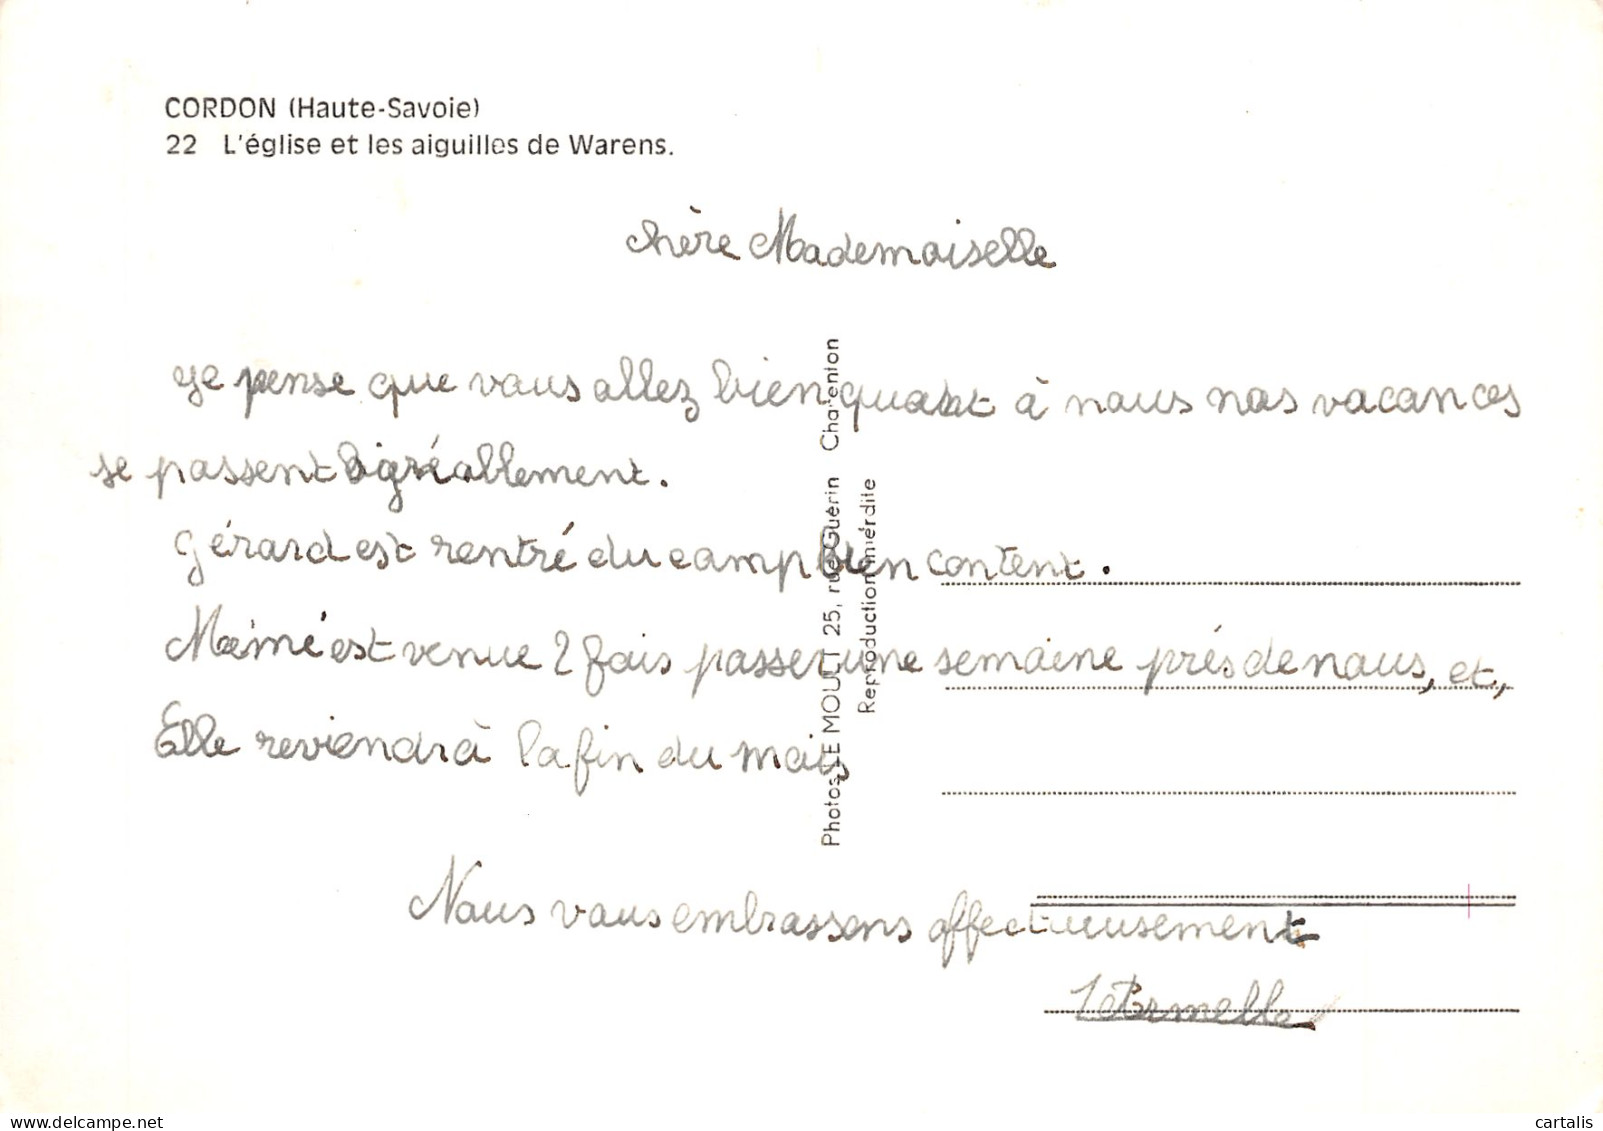 CORDON (Haute-Savoie)
22 L'église et les aiguilles de Warens.
chère Mademoiselle
Je pense que vous allez bien quant à nous nos vacances
se passent agréablement.
Gérard est rentré du camp bien content.
Mémé est venue 2 fois passer une semaine près de nous, et,
Elle reviendra à la fin du mois
Nous vous embrassons affectueusement
Photos LE MOULT 25, rue Guérin Charenton
Reproduction interdite
cartalis.com